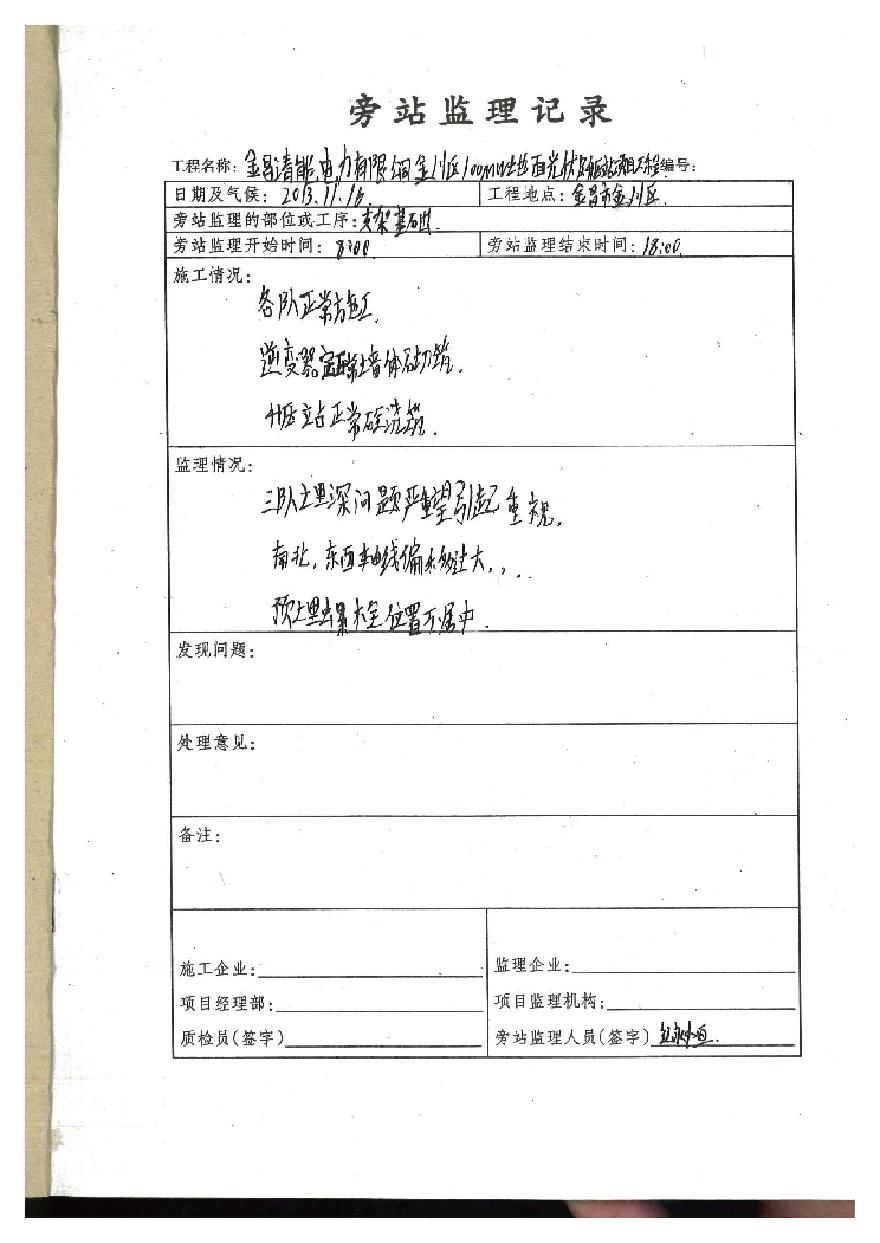 旁站监理记录
工程名称：金昌清能电力有限公司金川区100MW 光伏 项目工程编号：
日期及气候：2013.11.16
工程地点：金昌市金川区.
旁站监理的部位或工序：支架基础.
旁站监理开始时间：8:00
旁站监理结束时间：18:00
施工情况：
各队正常施工.
逆变器室 墙体砌筑.
升压站正常砼浇筑.
监理情况：
三队 深问题严重望引起重视.
南北,东西轴线偏 过大,
位置不居中.
发现问题：
处理意见：
备注：
施工企业：
监理企业：
项目经理部：
项目监理机构：
质检员(签字)
旁站监理人员(签字)